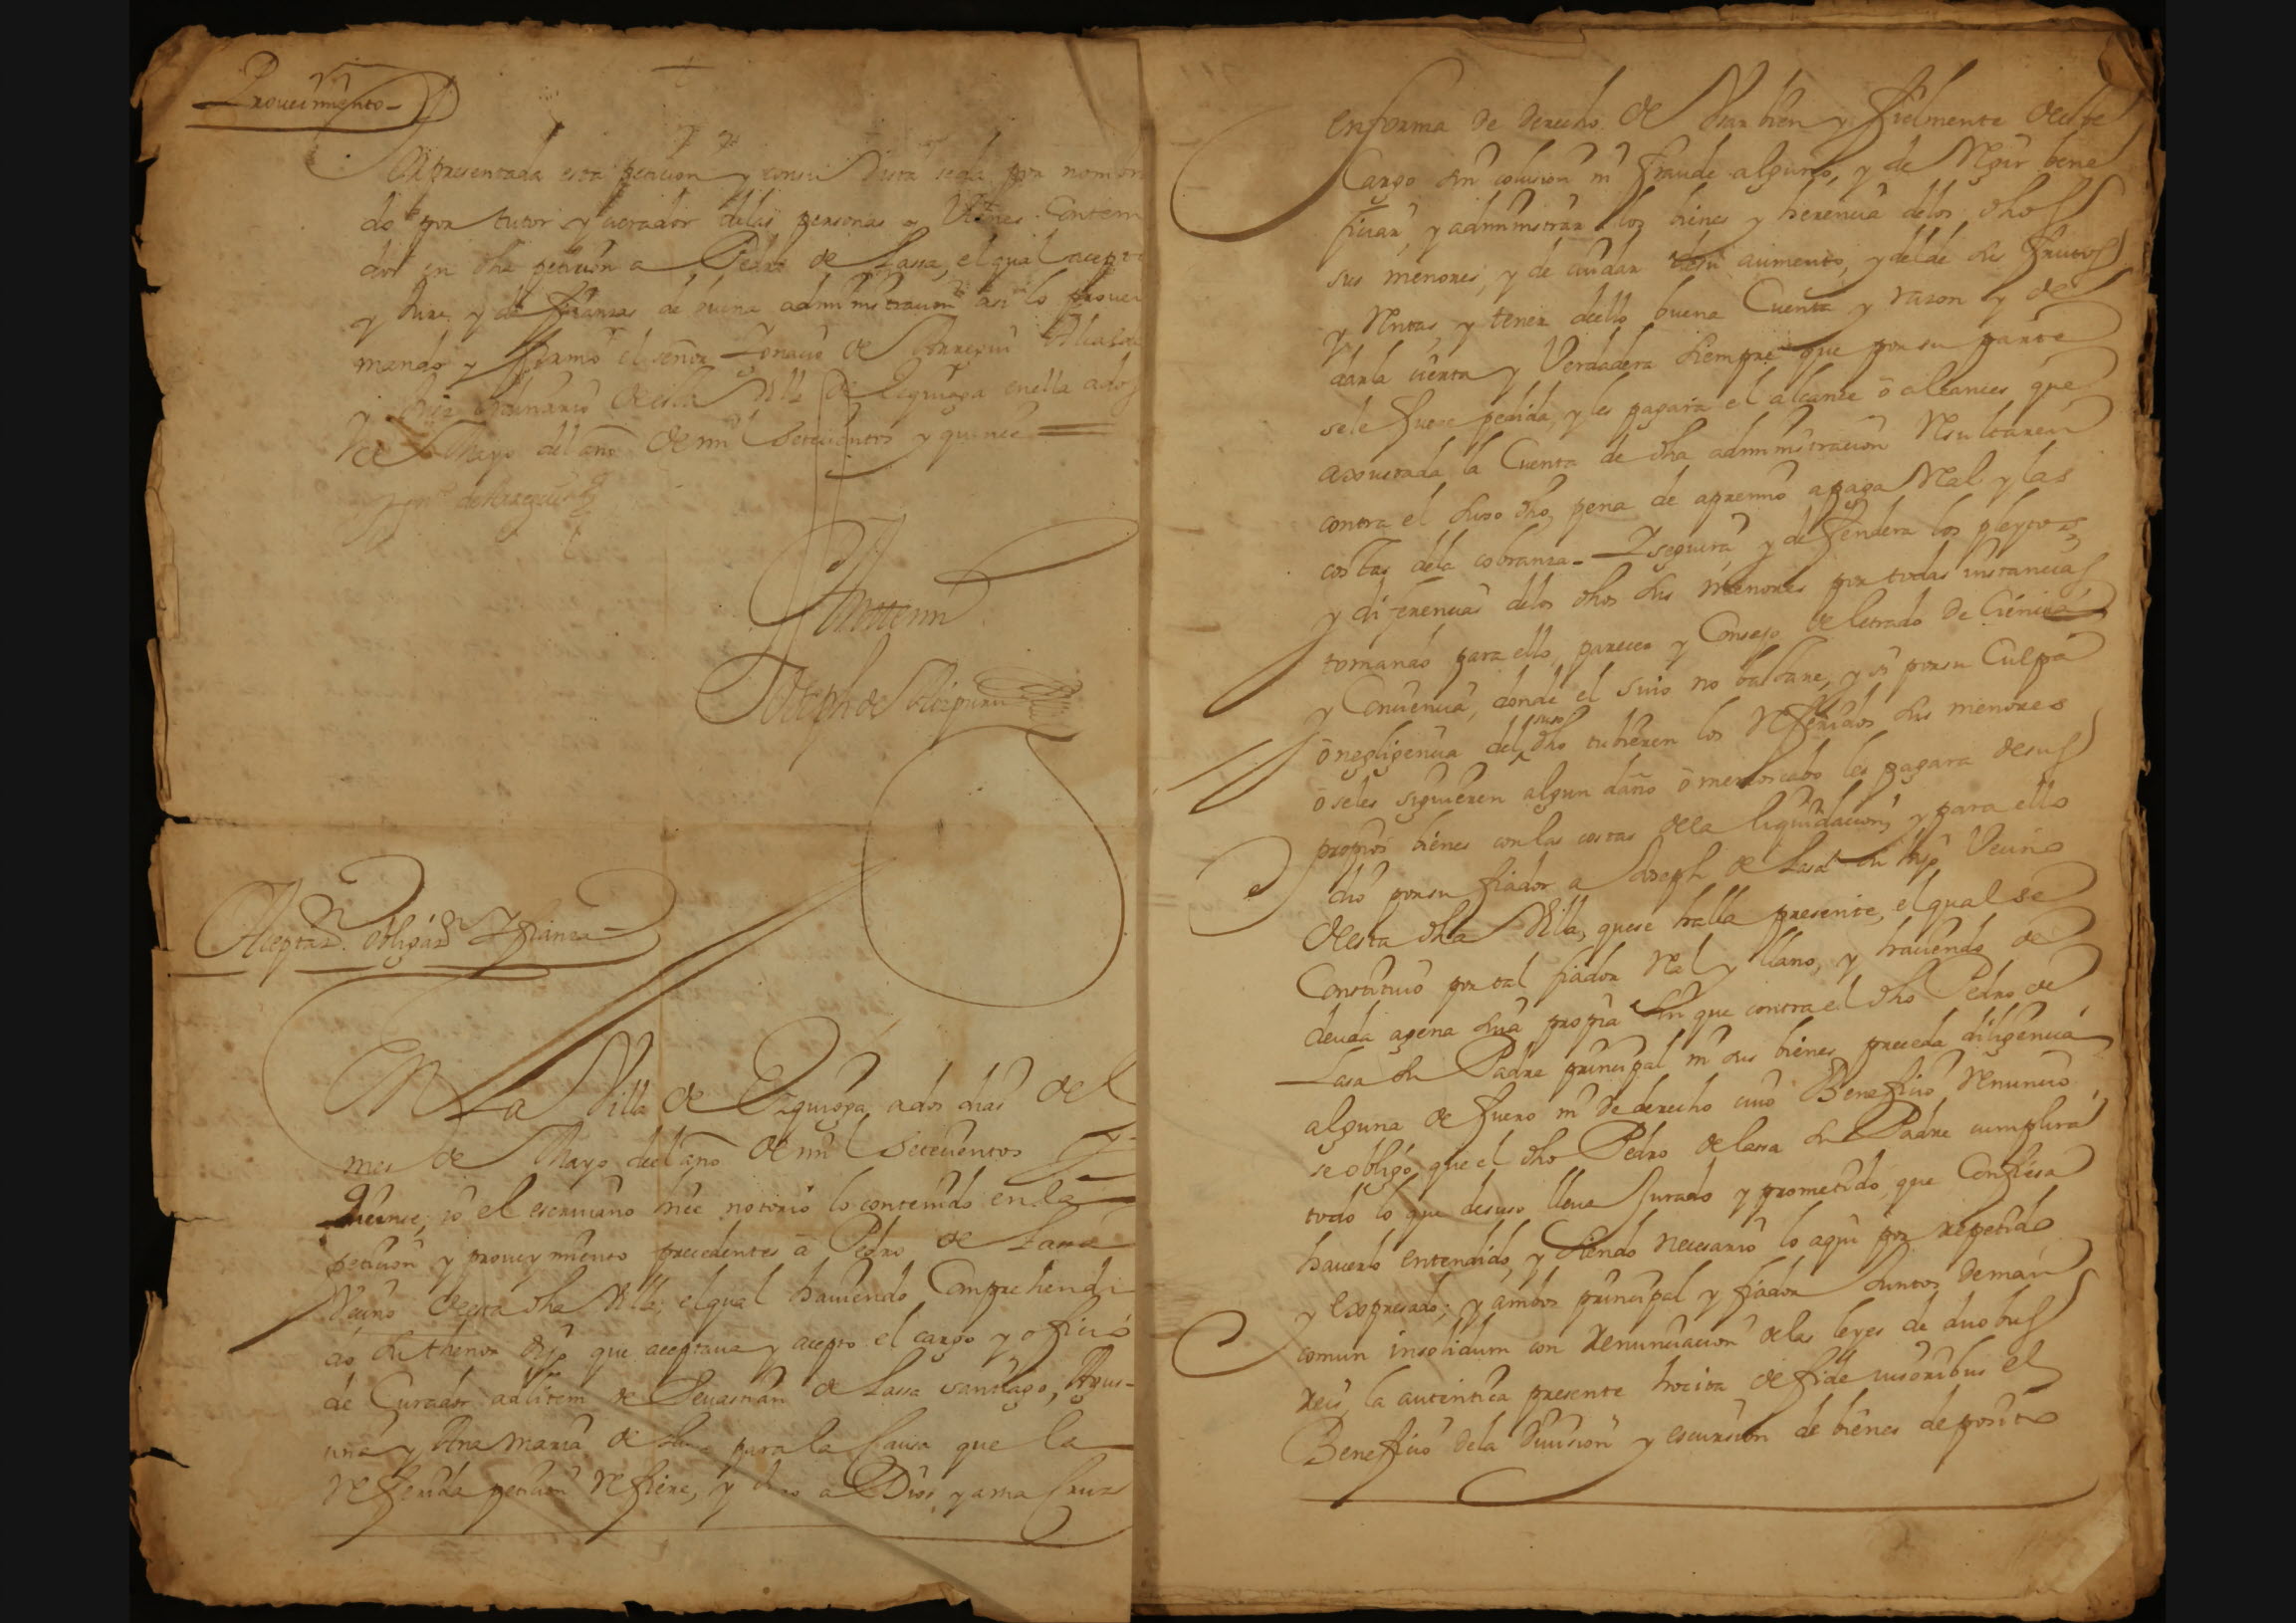 Proueimiento
Representada esta peticion y con su Vista seda por nombra
do por tutor y curador delas personas y Vienes Conteni
dos en dha peticion a Pedro de Lassa, el qual acepte
y Jure, y dé fianzas de buena administracion asi lo proueió
mando y firmó el señor Ignacio de Arregui Alcalde
y Juez ordinario de esta Villa de Ezquioga en ella ados
de Mayo del año de mil Setecientos y quince
Ignº de Arregui
Ante mi
Joseph de Aizpuru
Aceptazn. obligazn. Y fianza
En La Villa de Ezquioga, ados dias del
mes de Mayo del año de mil Setecientos y
quince, io el escriuano hice notorio lo contenido en la
peticion y proueymiento precedentes â Pedro de Lassa
Vecino de esta dha Villa, el qual hauiendo Comprehendi
do su thenor dijo que aceptaua y acepto el cargo y oficio
de Curador adlitem de Seuastian de Lassa Santiago, Agus-
tina y Ana Maria de Lassa para la Causa que la
Referida peticion Refiere, y Juro a Dios y a una Cruz
en forma de derecho de Usar bien y fielmente de este
Cargo sin colusion ni fraude alguno, y de Regir bene
ficiar, y administrar los bienes y herencia delos dhos
sus menores, y de cuidar de su aumento, y del de sus frutos
y Rentas, y tener dello buena Cuenta y razon y de
darla cierta y Verdadera siempre que por su parte
sele fuere pedida, y les pagara el alcance ô alcances que
axustada la Cuenta de dha administracion Resultaren
contra el suso dho, pena de apremio a paga Real y las
costas dela cobranza - Y seguirá y defendera los pleytos
y diferencias delos dhos sus menores por todas instancias
tomando para ello, parecer y Consejo de letrado de Ciencia
y Conciencia, donde el suio no bastare, y si por su Culpa
ô negligencia del suso dho tubieren los Referidos sus menores
ô seles siguieren algun daño ô menoscabo les pagara de sus
propios bienes con las costas dela liquidacion, y para ello
dio por su fiador a Joseph de Lasa su hijo Vecino
de esta dha Villa, que se halla presente, el qual se
Constituió por tal fiador Real y llano, y haciendo de
deuda agena suia propia sin que contra el dho Pedro de
Lasa su Padre principal ni sus bienes preceda diligencia
alguna de fuero ni de derecho cuio Beneficio Renuncio
se obligó, que el dho Pedro de lassa su Padre cumplirá
todo lo que desuso lleua Jurado y prometido, que Confiesa
hauerlo entendido, y siendo necesario lo aqui por repetido
y expresado; y ambos principal y fiador Juntos de man
comun insolidum con renunciacion delas leyes de duobus
reis, la autentica presente hocita de fide iusoribus el
Beneficio dela Diuision y escursion de bienes deposito